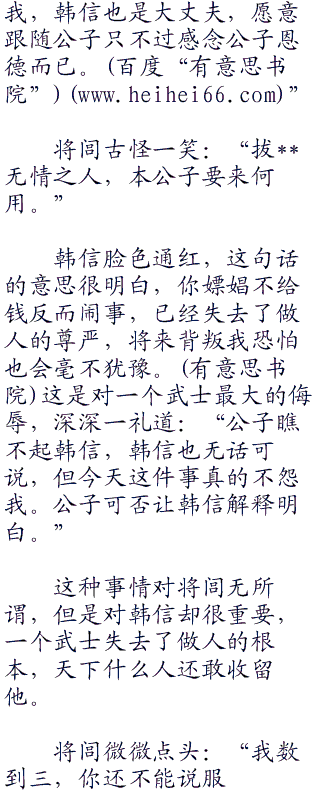 我，韩信也是大丈夫，愿意
跟随公子只不过感念公子恩
德而已。(百度“有意思书
院”)(www.heihei66.com)”
将闾古怪一笑：“拔**
无情之人，本公子要来何
用。”
韩信脸色通红，这句话
的意思很明白，你嫖娼不给
钱反而闹事，已经失去了做
人的尊严，将来背叛我恐怕
也会毫不犹豫。(有意思书
院)这是对一个武士最大的侮
辱，深深一礼道：“公子瞧
不起韩信，韩信也无话可
说，但今天这件事真的不怨
我。公子可否让韩信解释明
白。”
这种事情对将闾无所
谓，但是对韩信却很重要，
一个武士失去了做人的根
本，天下什么人还敢收留
他。
将闾微微点头：“我数
到三，你还不能说服